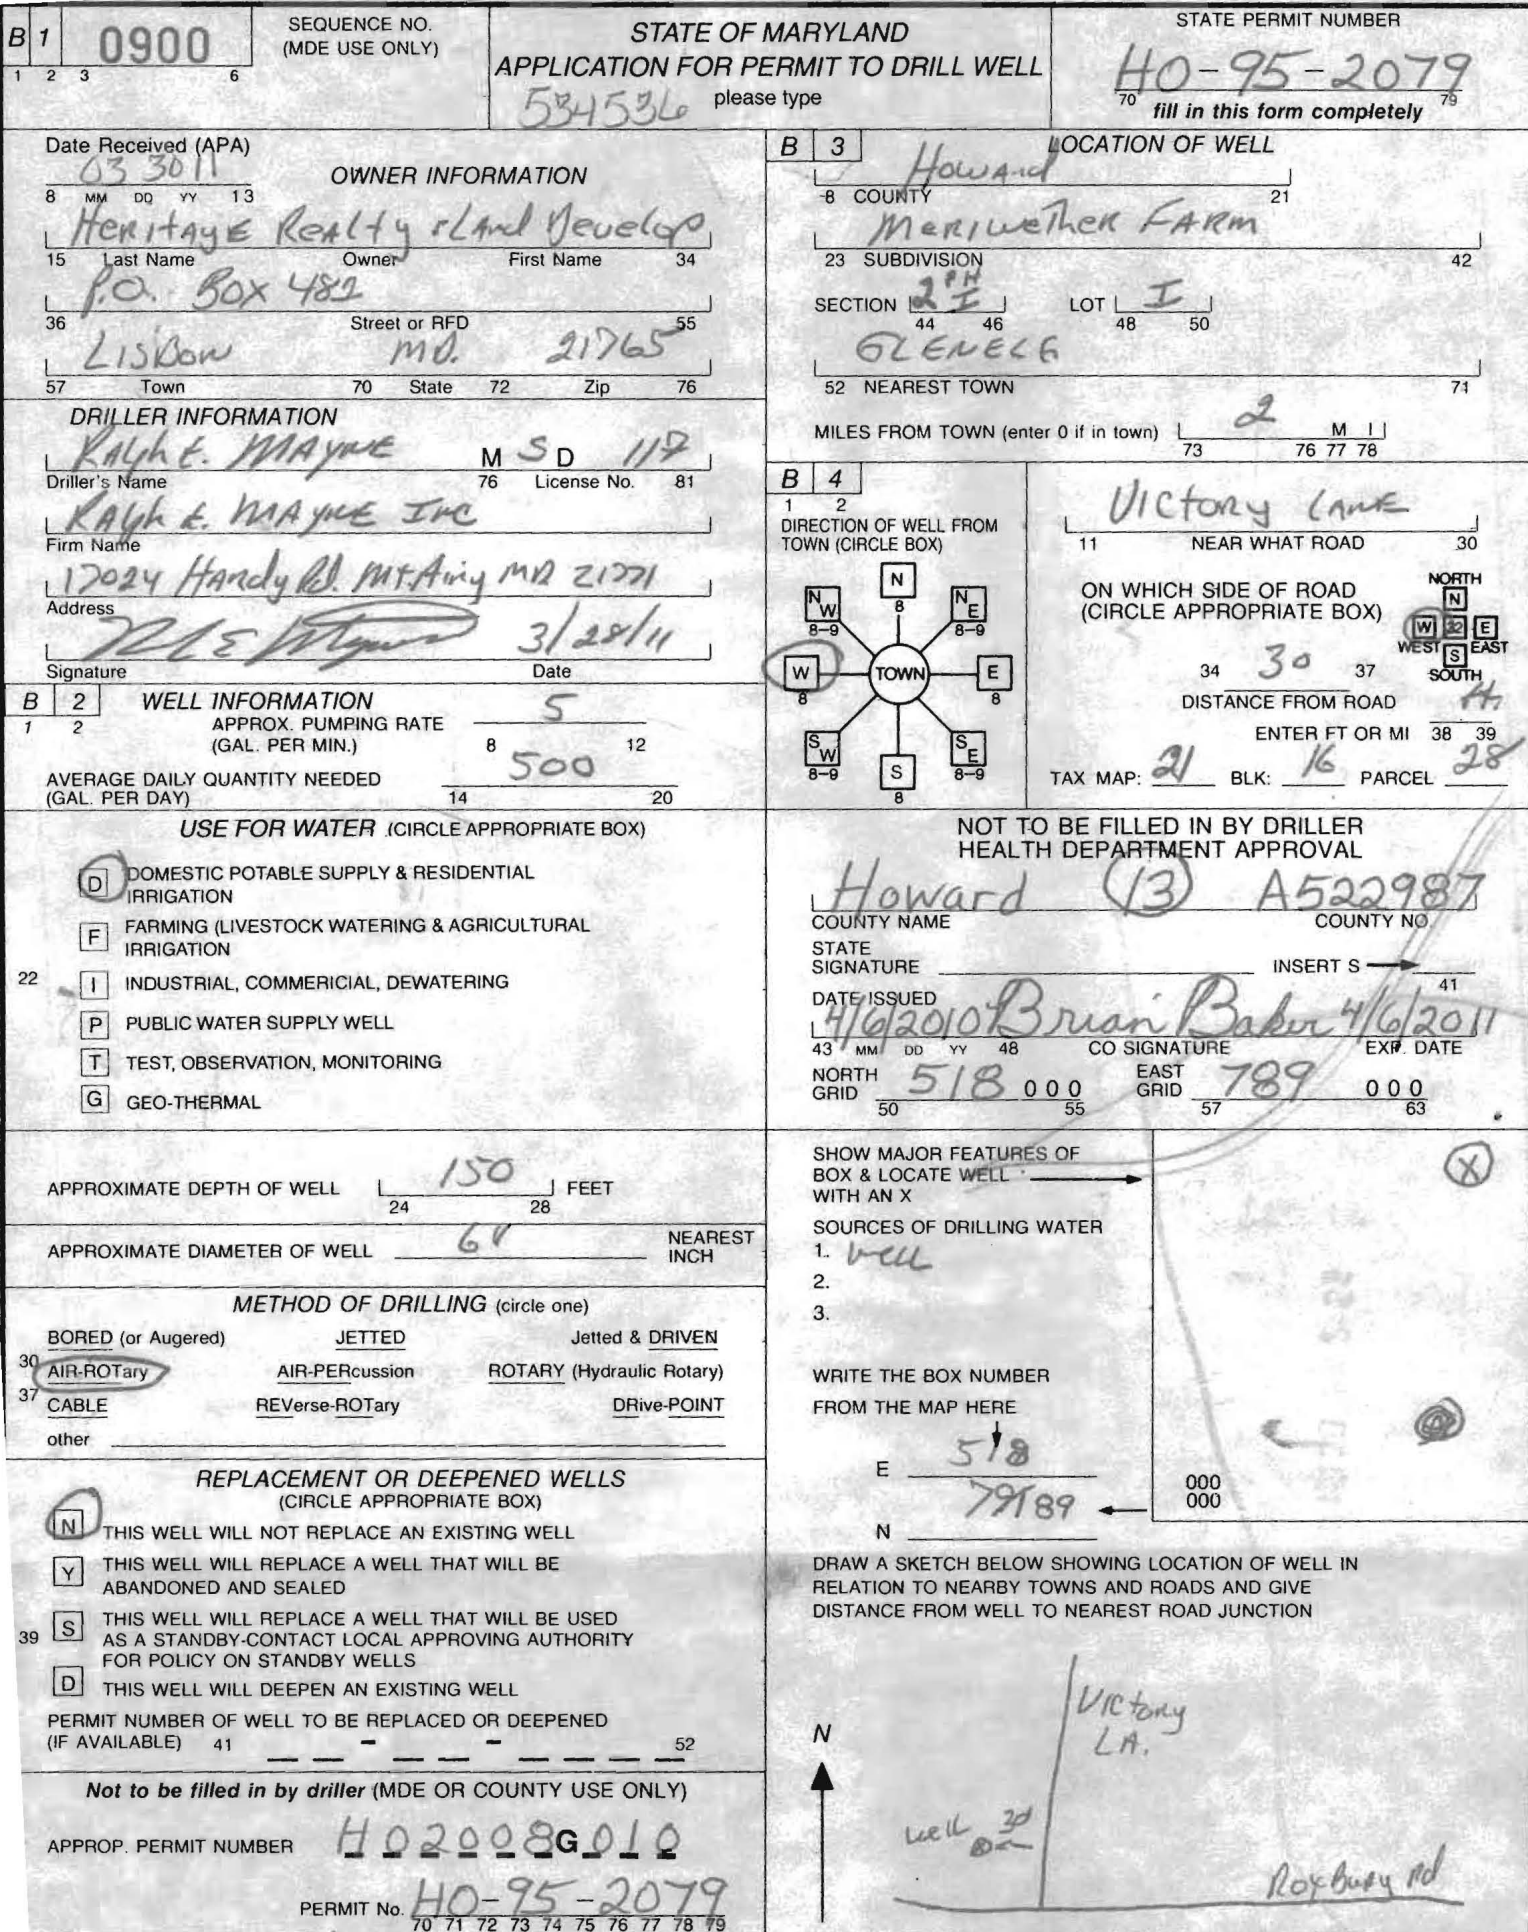 B 1
0900
1 2 3 6
SEQUENCE NO.
(MDE USE ONLY)
STATE OF MARYLAND
APPLICATION FOR PERMIT TO DRILL WELL
534536 please type
STATE PERMIT NUMBER
HO-95-2079
70 79
fill in this form completely
Date Received (APA)
03 30 11
8 MM DD YY 13
OWNER INFORMATION
Heritage Realty & Land Develop
15 Last Name Owner First Name 34
P.O. Box 482
36 Street or RFD 55
Lisbon MD. 21765
57 Town 70 State 72 Zip 76
DRILLER INFORMATION
Ralph E. MAYNE M S D 117
Driller's Name 76 License No. 81
Ralph E. MAYNE Inc
Firm Name
17024 Hardy Rd. Mt. Airy MD 21771
Address
3/28/11
Signature Date
B 2
1 2
WELL INFORMATION
APPROX. PUMPING RATE 5
(GAL. PER MIN.) 8 12
AVERAGE DAILY QUANTITY NEEDED 500
(GAL. PER DAY) 14 20
USE FOR WATER (CIRCLE APPROPRIATE BOX)
D DOMESTIC POTABLE SUPPLY & RESIDENTIAL
IRRIGATION
F FARMING (LIVESTOCK WATERING & AGRICULTURAL
IRRIGATION
22 I INDUSTRIAL, COMMERICIAL, DEWATERING
P PUBLIC WATER SUPPLY WELL
T TEST, OBSERVATION, MONITORING
G GEO-THERMAL
APPROXIMATE DEPTH OF WELL 150 FEET
24 28
APPROXIMATE DIAMETER OF WELL 6" NEAREST
INCH
METHOD OF DRILLING (circle one)
BORED (or Augered) JETTED Jetted & DRIVEN
30 AIR-ROTary AIR-PERcussion ROTARY (Hydraulic Rotary)
37 CABLE REVerse-ROTary DRive-POINT
other
REPLACEMENT OR DEEPENED WELLS
(CIRCLE APPROPRIATE BOX)
N THIS WELL WILL NOT REPLACE AN EXISTING WELL
Y THIS WELL WILL REPLACE A WELL THAT WILL BE
ABANDONED AND SEALED
39 S THIS WELL WILL REPLACE A WELL THAT WILL BE USED
AS A STANDBY-CONTACT LOCAL APPROVING AUTHORITY
FOR POLICY ON STANDBY WELLS
D THIS WELL WILL DEEPEN AN EXISTING WELL
PERMIT NUMBER OF WELL TO BE REPLACED OR DEEPENED
(IF AVAILABLE) 41 - - 52
Not to be filled in by driller (MDE OR COUNTY USE ONLY)
APPROP. PERMIT NUMBER HO2008G010
PERMIT No. HO-95-2079
70 71 72 73 74 75 76 77 78 79
B 3
LOCATION OF WELL
Howard
8 COUNTY 21
Meriwether FARM
23 SUBDIVISION 42
SECTION 2 PH I LOT I
44 46 48 50
GLENELG
52 NEAREST TOWN 71
MILES FROM TOWN (enter 0 if in town) 2 M I
73 76 77 78
B 4
1 2
DIRECTION OF WELL FROM
TOWN (CIRCLE BOX)
N
8
NW
8-9
NE
8-9
W
8
TOWN
E
8
SW
8-9
S
8
SE
8-9
Victory Lane
11 NEAR WHAT ROAD 30
ON WHICH SIDE OF ROAD
(CIRCLE APPROPRIATE BOX)
NORTH
N
W 32 E
WEST EAST
S
SOUTH
34 30 37
DISTANCE FROM ROAD
ft
ENTER FT OR MI 38 39
TAX MAP: 21 BLK: 16 PARCEL 28
NOT TO BE FILLED IN BY DRILLER
HEALTH DEPARTMENT APPROVAL
Howard 13 A522987
COUNTY NAME COUNTY NO.
STATE
SIGNATURE INSERT S
41
DATE ISSUED
4/6/2010 Brian Baker 4/6/2011
43 MM DD YY 48 CO SIGNATURE EXP. DATE
NORTH
GRID 518 000
50 55
EAST
GRID 789 000
57 63
SHOW MAJOR FEATURES OF
BOX & LOCATE WELL
WITH AN X
X
SOURCES OF DRILLING WATER
1. well
2.
3.
WRITE THE BOX NUMBER
FROM THE MAP HERE
E 518
N 79189
000
000
DRAW A SKETCH BELOW SHOWING LOCATION OF WELL IN
RELATION TO NEARBY TOWNS AND ROADS AND GIVE
DISTANCE FROM WELL TO NEAREST ROAD JUNCTION
N
Victory
LA.
well 30
Roxbury Rd